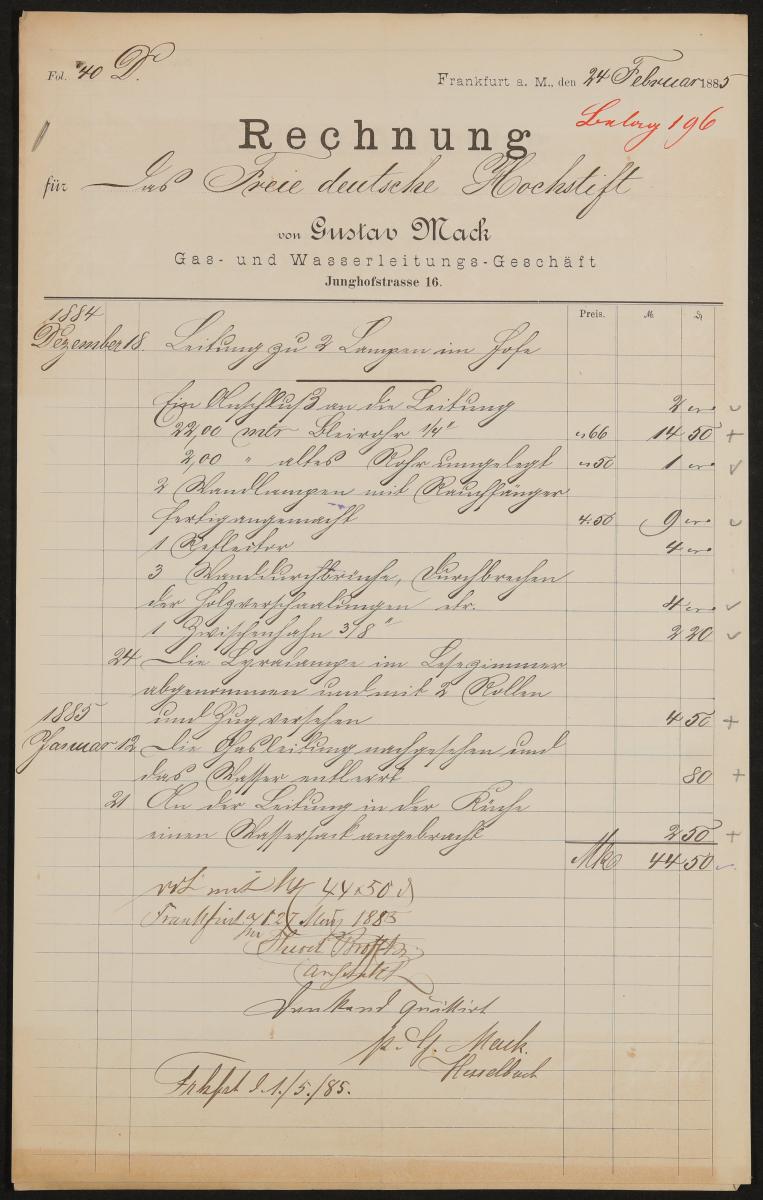 Fol. 40 D.
Frankfurt a. M., den 24 Februar 1885
Belag 196
Rechnung
für Das Freie deutsche Hochstift
von Gustav Mack
Gas- und Wasserleitungs-Geschäft
Junghofstrasse 16.
1884 Preis. M. ₰
Dezember 18. Leitung zu 2 Lampen im Hofe
Ein Anschluß an die Leitung 2
22,00 mtr Bleirohr 1/4" 66 14 50
2,00 " altes Rohr umgelegt 50 1
2 Wandlampen mit Rauchfänger
fertig angemacht 4.50 9
1 Reflector 4
3 Wanddurchbrüche, Durchbrechen
der Holzverschaalungen etc. 4
1 Zwischenhahn 3/8" 2 20
24 Die Lyralampe im Lesezimmer
abgenommen und mit 2 Rollen
1885 und Zug versehen 4 50
Januar 12 Die Gasleitung nachgesehen und
das Wasser entleert 80
21 An der Leitung in der Küche
einen Wassersack angebracht 2 50
Mk 44 50
mit M 44 50 ₰
Frankfurt 27 1885
Architekt
Dankend quittirt
p. G. Mack.
Hesselbach
Frkfrt d. 1./5./85.